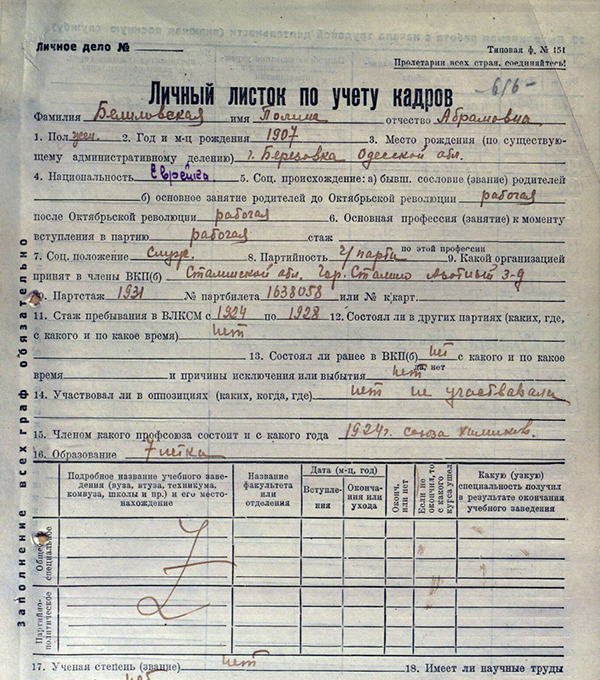 Личное дело №
Типовая ф. № 151
Пролетарии всех стран, соединяйтесь!
-616-
Личный листок по учету кадров
Фамилия Белиловская имя Полина отчество Абрамовна
1. Пол жен. 2. Год и м-ц рождения 1907 3. Место рождения (по существую-
щему административному делению) г. Березовка Одесской обл.
4. Национальность Еврейка 5. Соц. происхождение: а) бывш. сословие (звание) родителей
б) основное занятие родителей до Октябрьской революции рабочая
после Октябрьской революции рабочая 6. Основная профессия (занятие) к моменту
вступления в партию рабочая стаж
по этой профессии
7. Соц. положение служ. 8. Партийность ч/парти 9. Какой организацией
принят в члены ВКП(б) Сталинской обл. гор. Сталино Азотный з-д
10. Партстаж 1931 № партбилета 1638058 или № к/карт.
11. Стаж пребывания в ВЛКСМ с 1924 по 1928 12. Состоял ли в других партиях (каких, где,
с какого и по какое время) нет
13. Состоял ли ранее в ВКП(б) нет с какого и по какое
да, нет
время и причины исключения или выбытия нет
14. Участвовал ли в оппозициях (каких, когда, где) нет не участвавала
15. Членом какого профсоюза состоит и с какого года 1924 г. союза химиков.
16. Образование 7 летка
Подробное название учебного заве-
дения (вуза, втуза, техникума,
комвуза, школы и пр.) и его место-
нахождение
Название
факультета
или
отделения
Дата (м-ц, год)
Вступле-
ния
Оконча-
ния или
ухода
Оконч.
или нет
Если не
окончил, то
с какого
курса ушел
Какую (узкую)
специальность получил
в результате окончания
учебного заведения
Общее
специальное
Партийно-
политическое
заполнение всех граф обязательно
17. Ученая степень (звание) нет 18. Имеет ли научные труды
нет